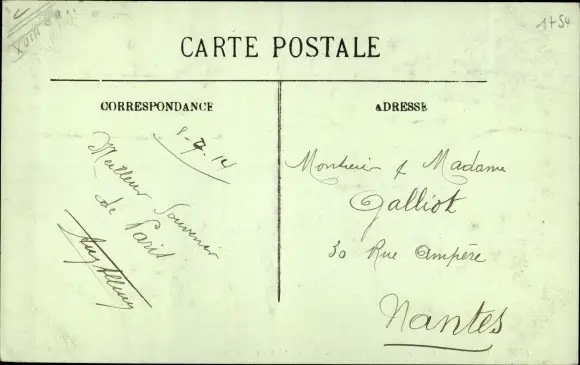 XVIII
1+50
CARTE POSTALE
CORRESPONDANCE
ADRESSE
8-7-14
Meilleur Souvenir
de Paris
Monsieur & Madame
Galliot
30 Rue Ampère
Nantes